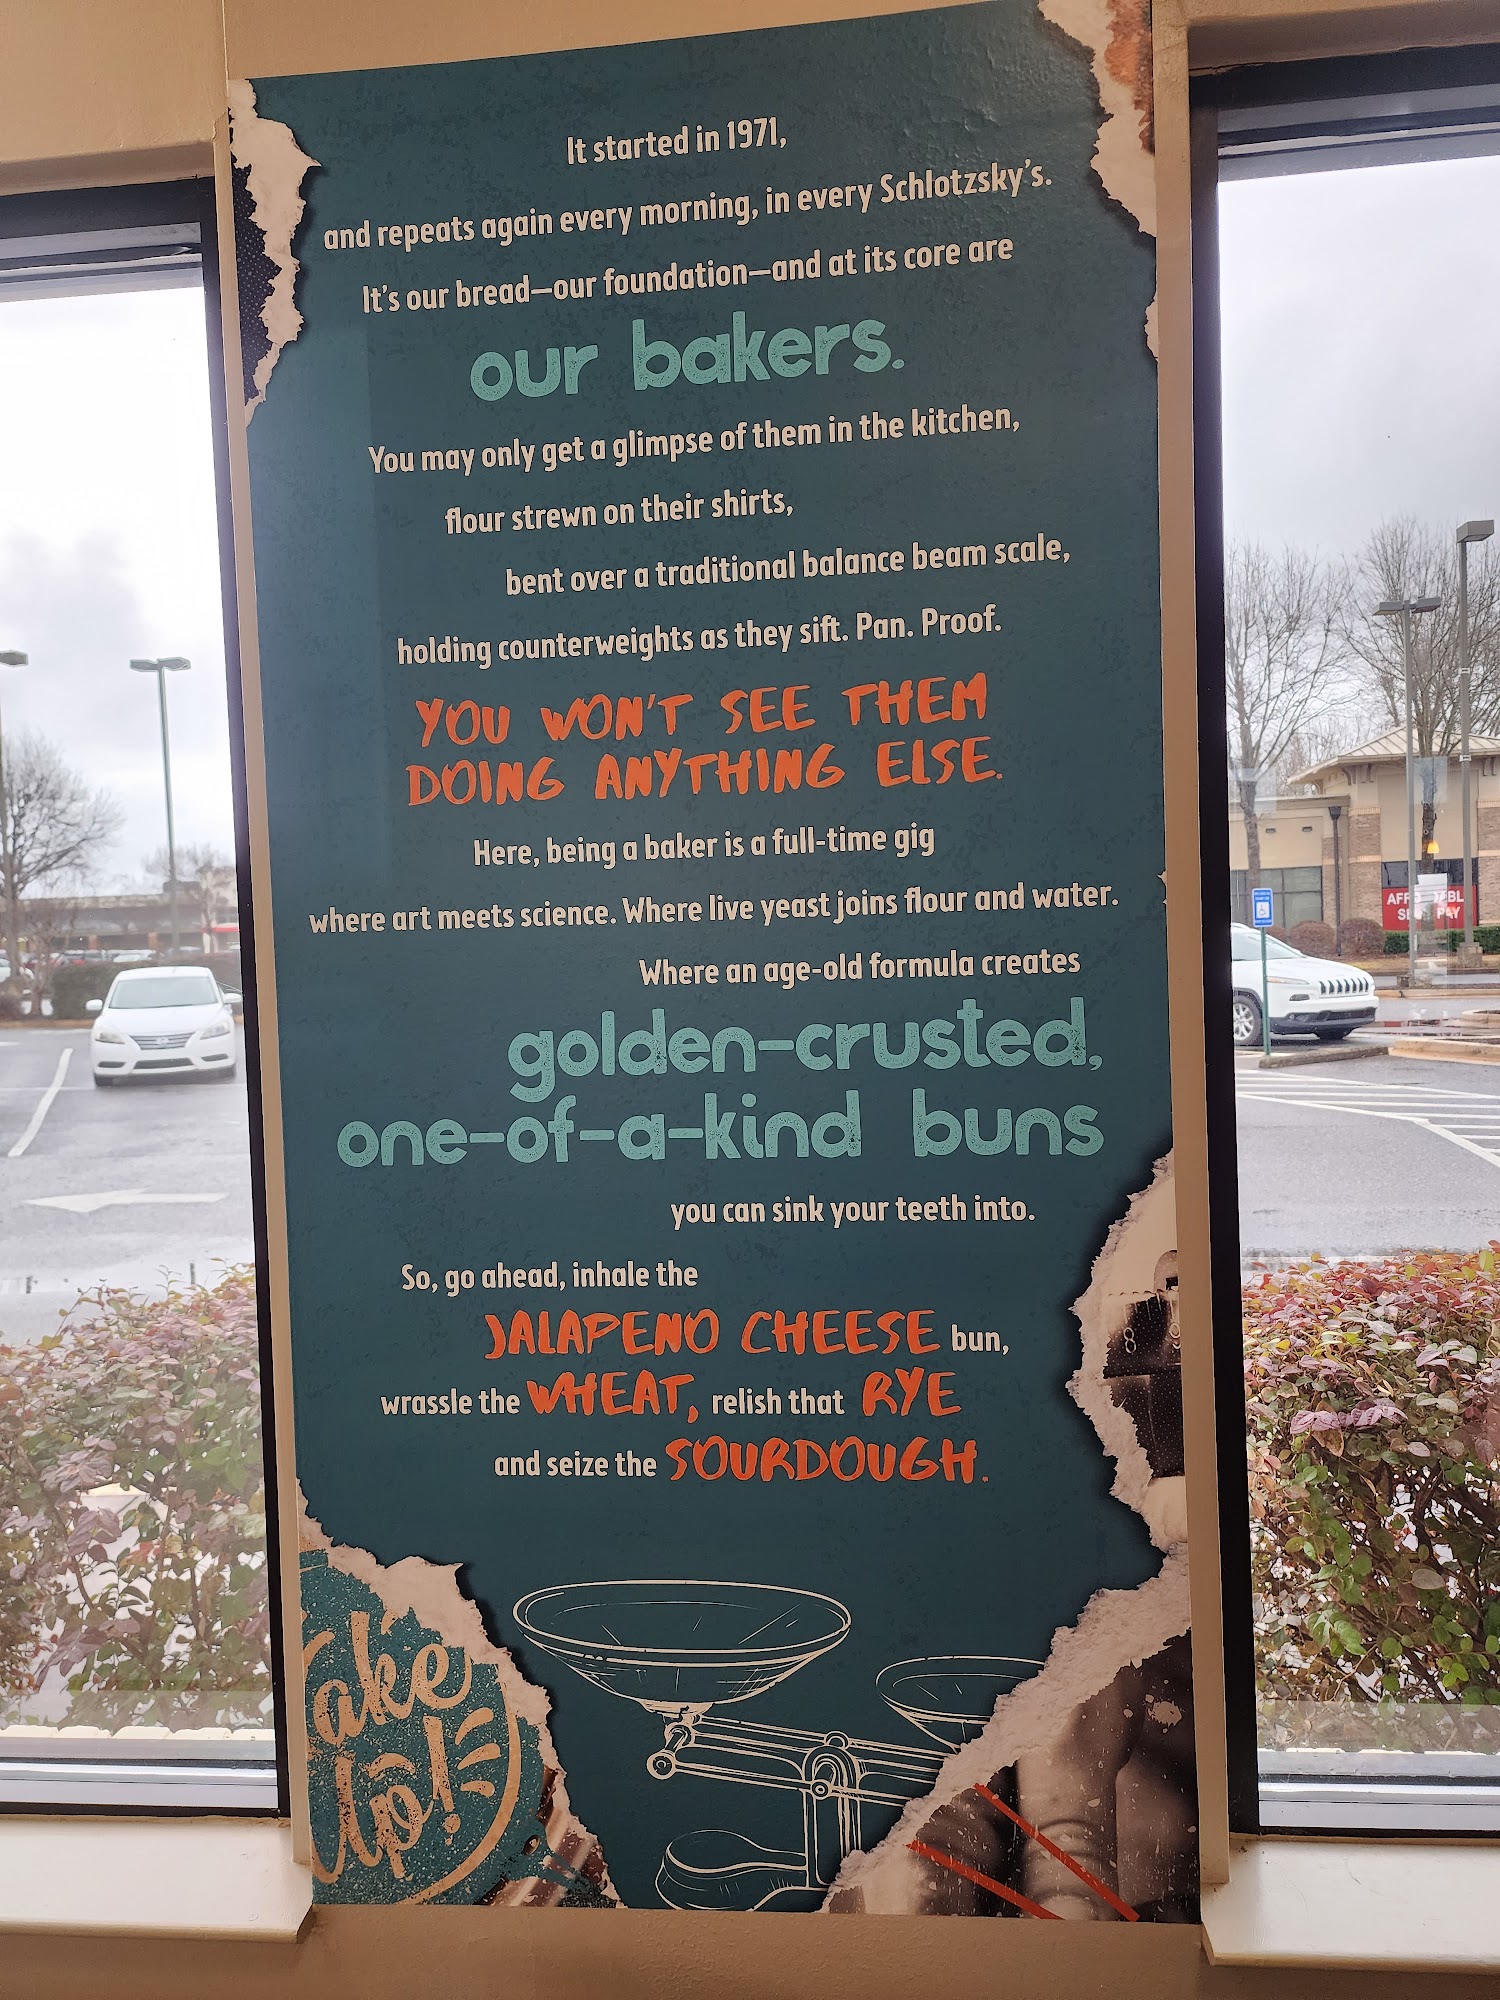 It started in 1971,
and repeats again every morning, in every Schlotzsky's.
It's our bread—our foundation—and at its core are
our bakers.
You may only get a glimpse of them in the kitchen,
flour strewn on their shirts,
bent over a traditional balance beam scale,
holding counterweights as they sift. Pan. Proof.
YOU WON'T SEE THEM
DOING ANYTHING ELSE.
Here, being a baker is a full-time gig
where art meets science. Where live yeast joins flour and water.
Where an age-old formula creates
golden-crusted,
one-of-a-kind buns
you can sink your teeth into.
So, go ahead, inhale the
JALAPENO CHEESE bun,
wrassle the WHEAT, relish that RYE
and seize the SOURDOUGH.
8 9
Up!
PAY